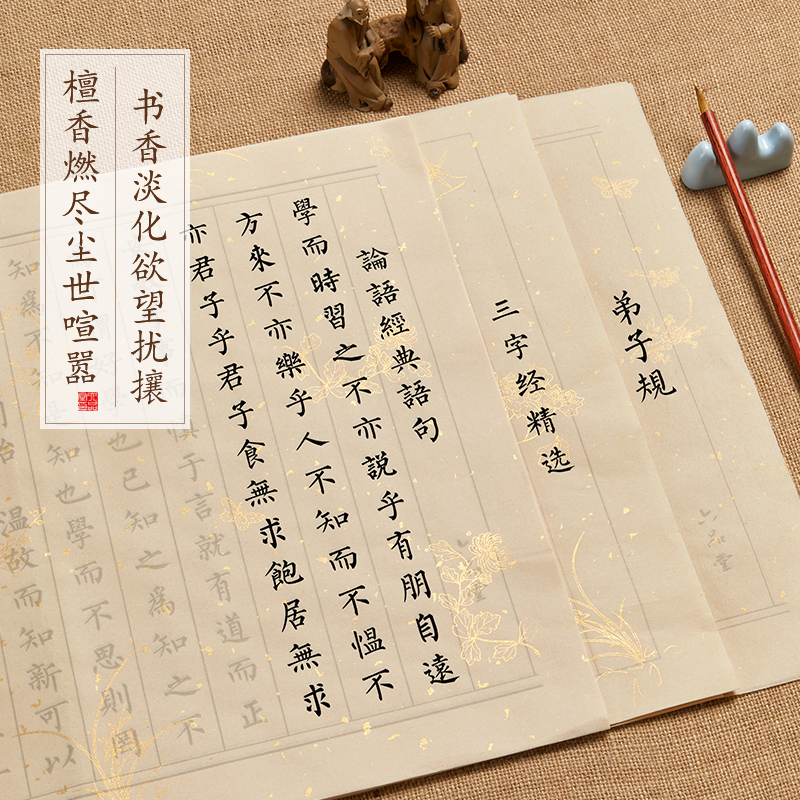 书香淡化欲望扰攘
檀香燃尽尘世喧嚣
弟子規
品堂
三字经精选
論語經典語句
學而時習之不亦説乎有朋自遠
方來不亦樂乎人不知而不愠不
亦君子乎君子食無求飽居無求
而慎于言就有道而正
也已知之為知之不
知也學而不思則罔
温故而知新可以
知為不